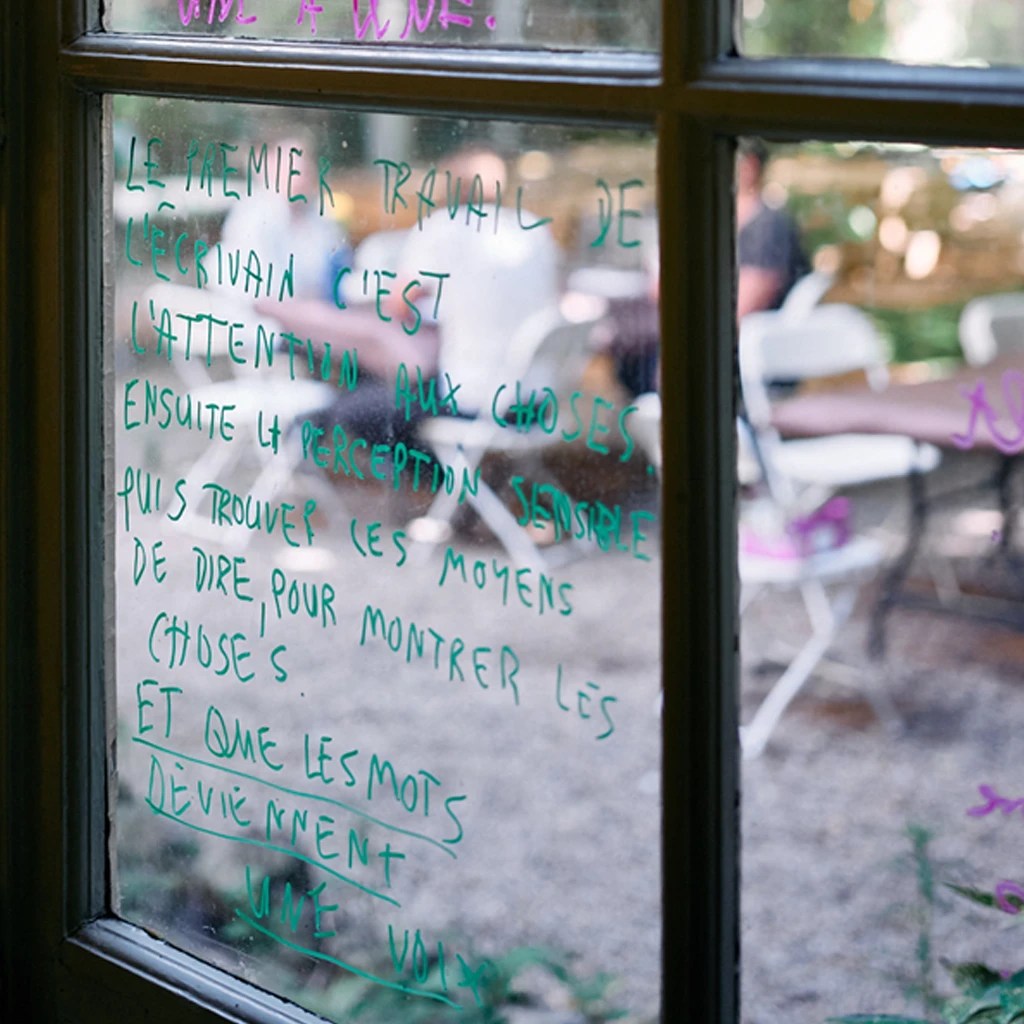 LE PREMIER TRAVAIL DE
L'ÉCRIVAIN C'EST
L'ATTENTION AUX CHOSES.
ENSUITE LA PERCEPTION SENSIBLE
PUIS TROUVER LES MOYENS
DE DIRE, POUR MONTRER LES
CHOSES
ET QUE LES MOTS
DEVIENNENT
UNE VOIX